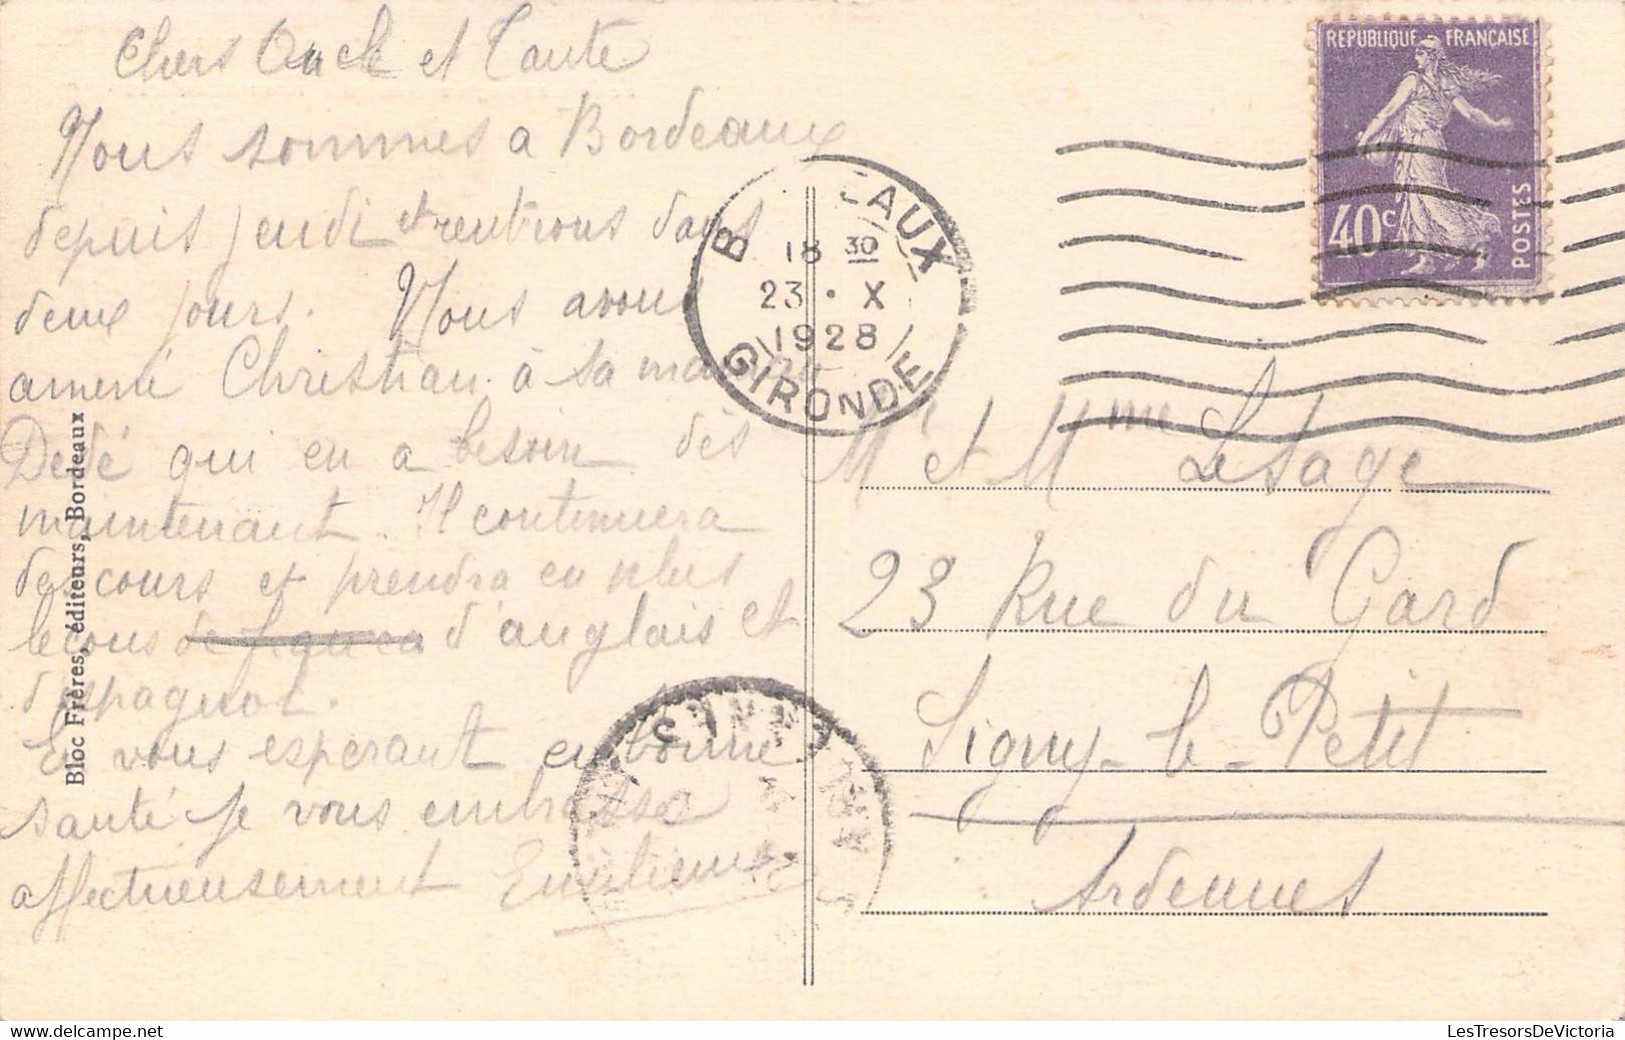 Chers Oncle et Tante
Nous sommes a Bordeaux
depuis jeudi et rentrons dans
deux jours. Nous avons
amené Christian à sa
Dédé qui en a besoin dès
maintenant. Il contenuera
des cours et prendra en plus
lecons d'anglais et
d'espagnol.
En vous espérant en bonne
santé je vous embrasse
affectueusement
Bloc Frères, éditeurs, Bordeaux
REPUBLIQUE FRANÇAISE
40c
POSTES
B EAUX
18 30
23 · X
1928
GIRONDE
Mr et Mme Lesage
23 Rue du Gard
Signy-le-Petit
Ardennes
LesTresorsDeVictoria